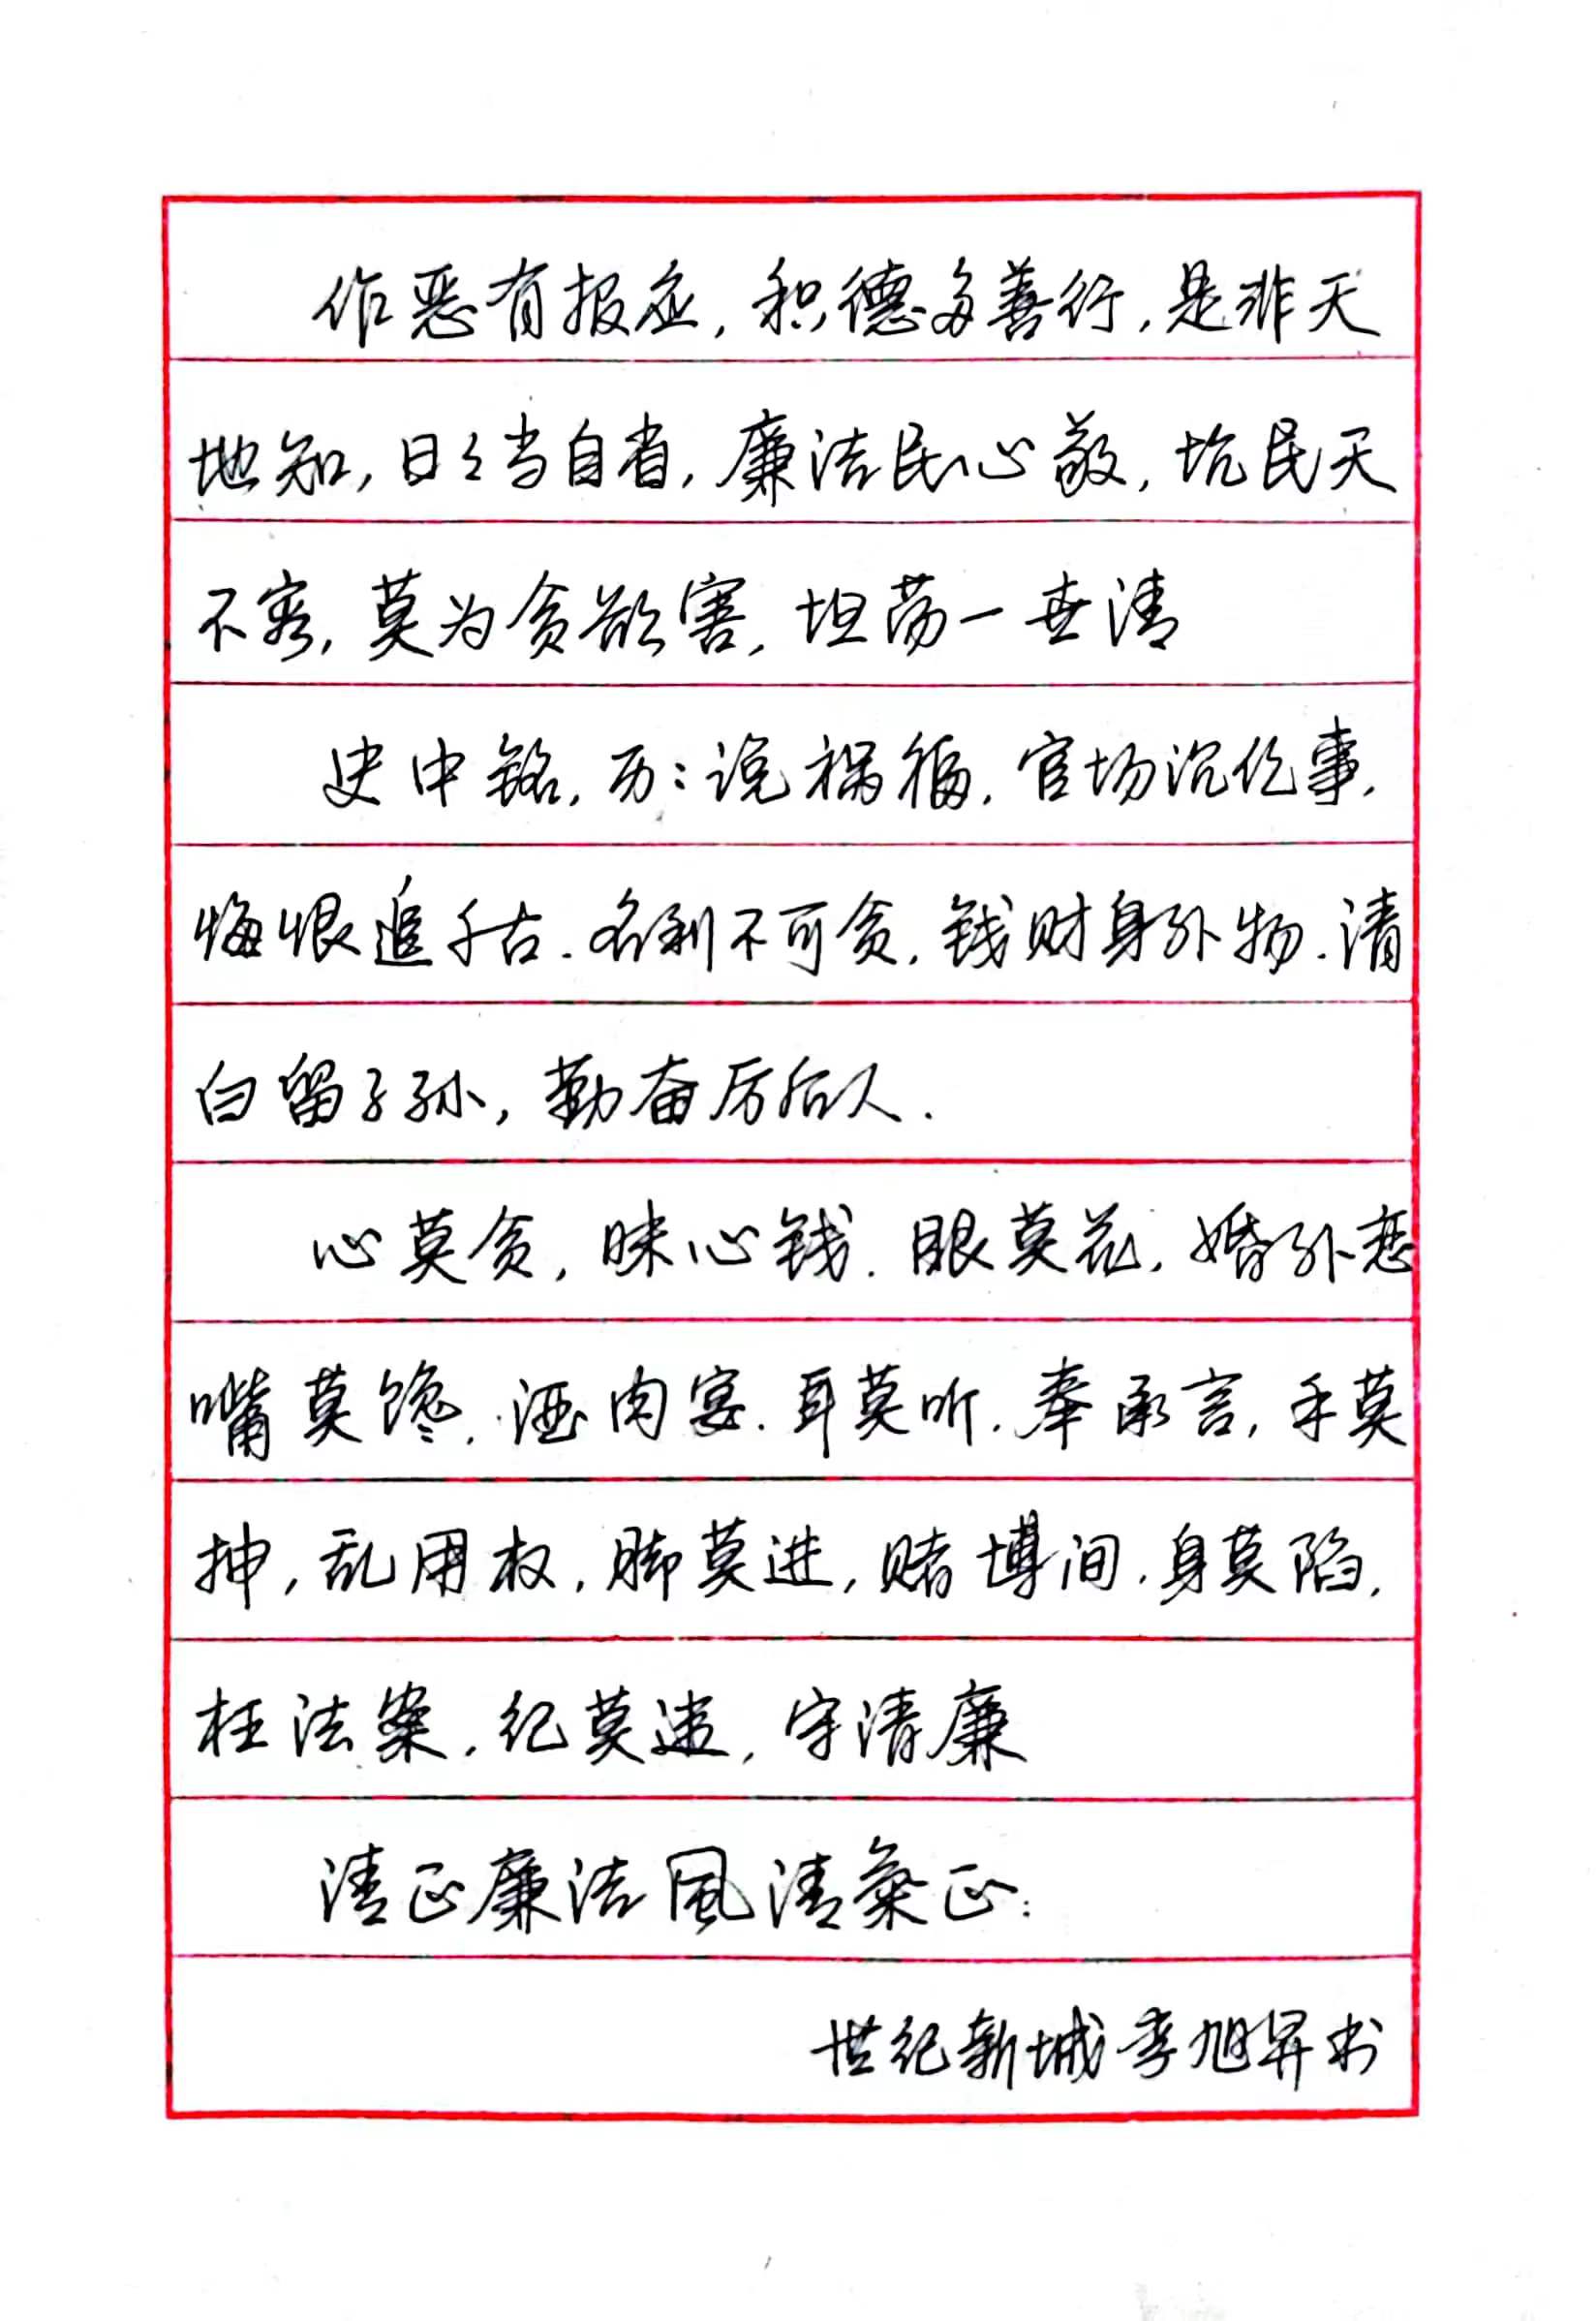 作恶有报应，积德多善行，是非天
地知，日々当自省，廉洁民心敬，坑民天
不容，莫为贪欲害，坦荡一世清
史中铭，历：说祸福，官场沉仡事，
悔恨追千古．名利不可贪，钱财身外物．清
白留子孙，勤奋厉后人．
心莫贪，昧心钱．眼莫花，婚外恋
嘴莫馋，酒肉宴．耳莫听．奉承言，手莫
抻，乱用权，脚莫进，赌博间，身莫陷，
枉法案，纪莫违，守清廉
清正廉洁風清氣正：
世纪新城李旭昇书